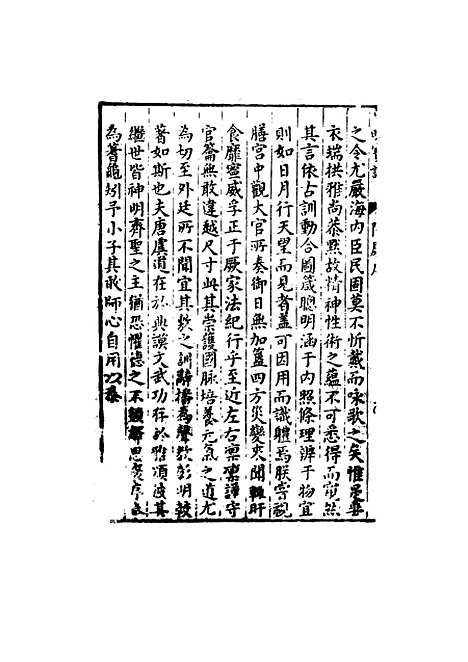 之令尤嚴海內臣民固莫不忻戴而咏歌之矣惟是垂
衣端拱雅尚恭默故精神性術之蘊不可悉得而窺然
其言依占訓動合國箴聰明涵于內照條理辨于物宜
則如日月行天望而見者蓋可因用而識體焉朕嘗視
膳宮中觀大官所奏御日無加簋四方災變來聞輒旰
食靡寧威孚正于厥家法紀行乎至近左右稟稟謹守
官籥無敢違越尺寸此其崇護國脉培養元氣之道尤
為切至外廷所不聞宜其敷之訓辭播為聲教彰明較
著如斯也夫唐虞道在於典謨文武功存於雅頌彼其
繼世皆神明齊聖之主猶恐懼德之不類
為蓍龜矧予小子其敢師心自用以忝